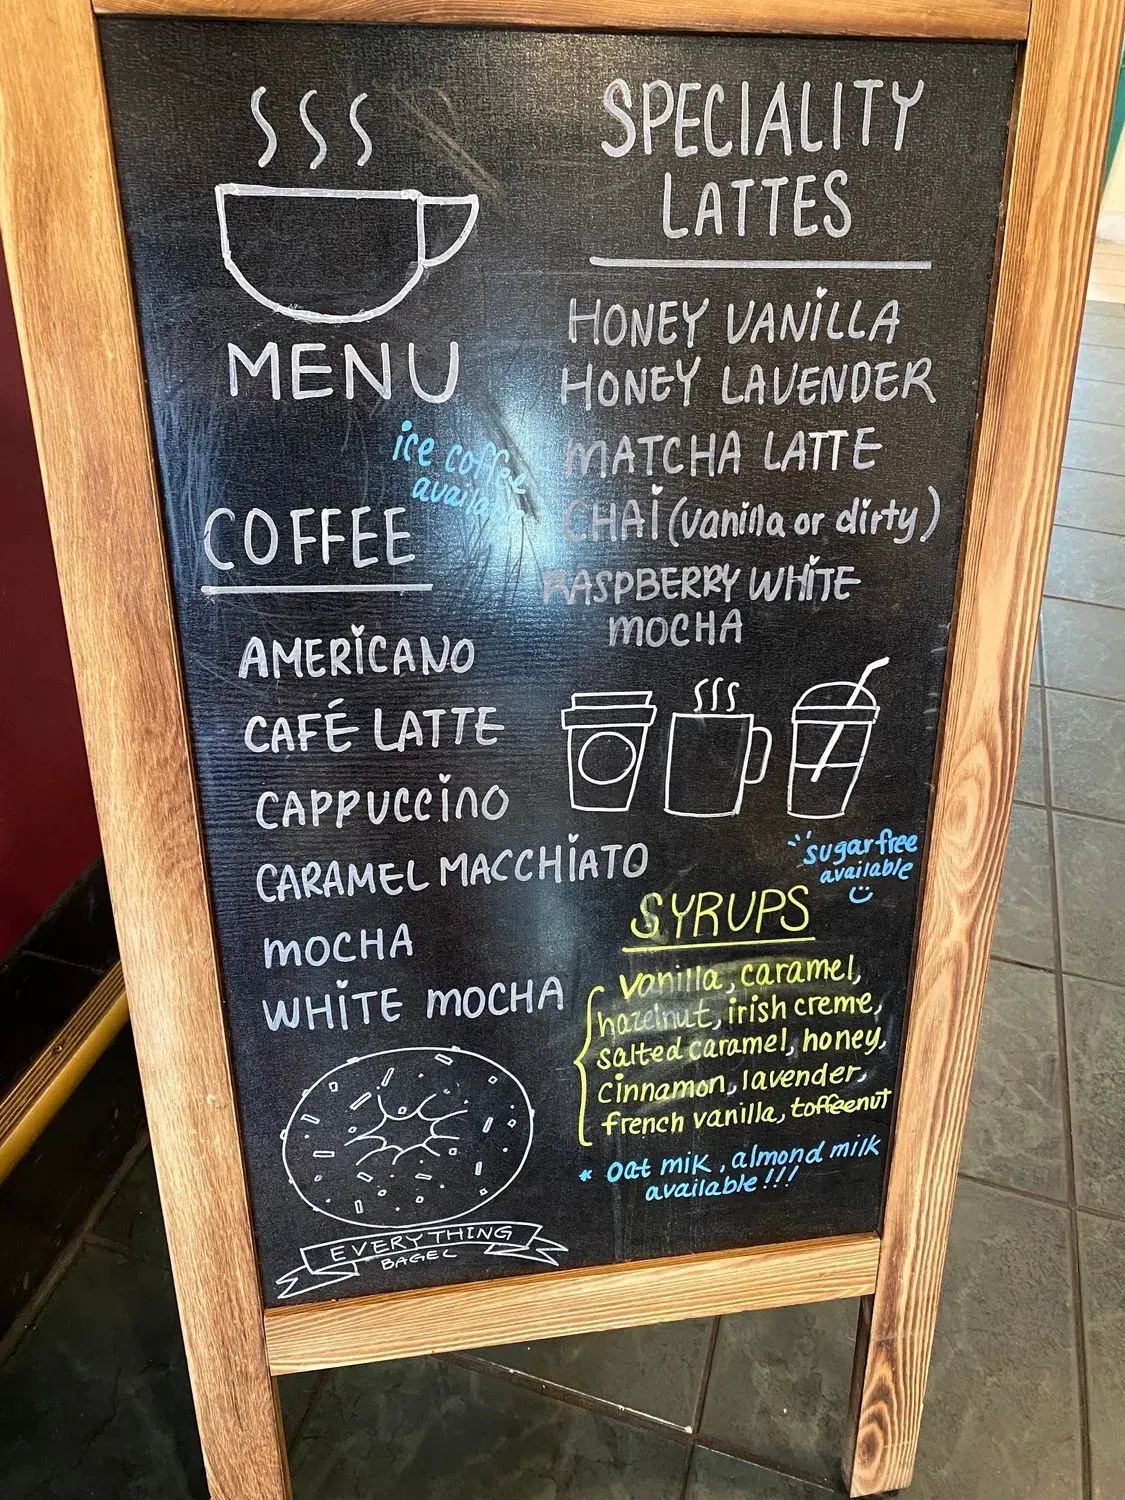 MENU
ice coffee
available
COFFEE
AMERICANO
CAFÉ LATTE
CAPPUCCINO
CARAMEL MACCHIATO
MOCHA
WHITE MOCHA
EVERYTHING
BAGEL
SPECIALITY
LATTES
HONEY VANILLA
HONEY LAVENDER
MATCHA LATTE
CHAI (vanilla or dirty)
RASPBERRY WHITE
MOCHA
sugar free
available
SYRUPS
vanilla, caramel,
hazelnut, irish creme,
salted caramel, honey,
cinnamon, lavender,
french vanilla, toffeenut
* oat milk, almond milk
available!!!